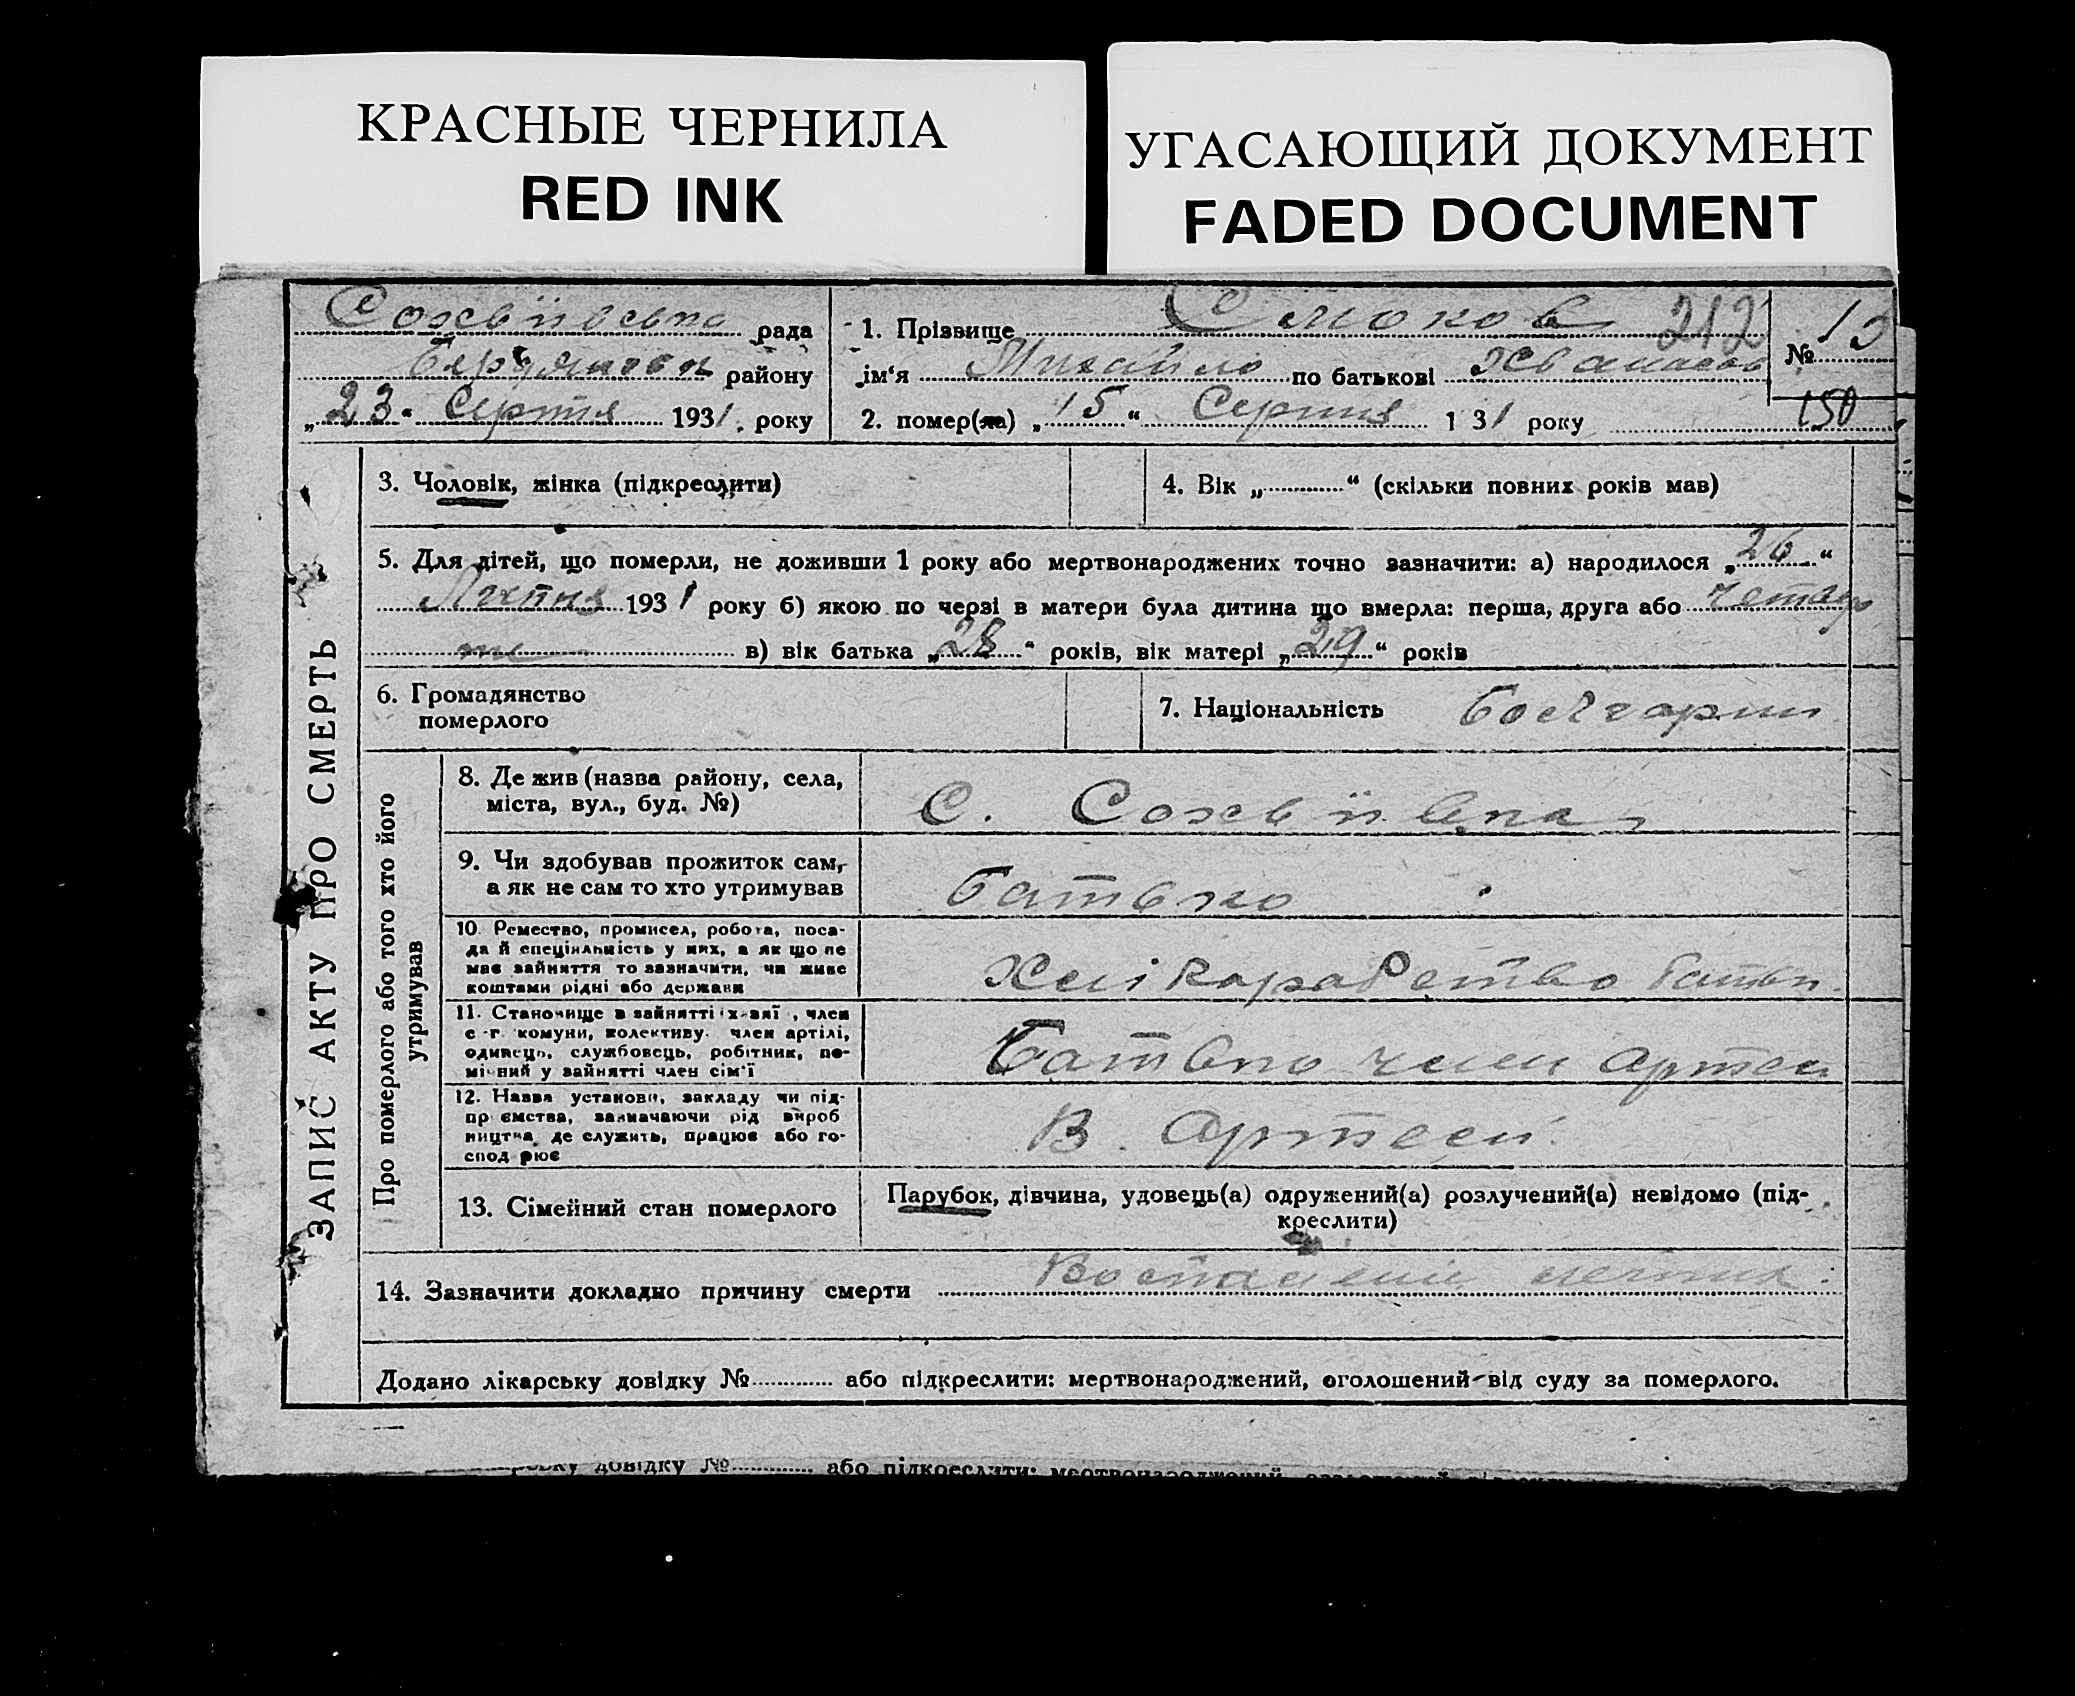 КРАСНЫЕ ЧЕРНИЛА
RED INK
УГАСАЮЩИЙ ДОКУМЕНТ
FADED DOCUMENT
Сохвіївська рада
Бердянськ району
„23“ Серпня 1931. року
1. Прізвище Смоков 212
ім‘я Михайло по батькові Хванасов
2. помер(ла) „15“ Серпня 1 31 року
№ 13
150
ЗАПИС АКТУ ПРО СМЕРТЬ
3. Чоловік, жінка (підкреслити)
4. Вік „ “ (скільки повних років мав)
5. Для дітей, що померли, не доживши 1 року або мертвонароджених точно зазначити: а) народилося „26“
Липня 1931 року б) якою по черзі в матери була дитина що вмерла: перша, друга або четвер
те в) вік батька „28“ років, вік матері „29“ років
6. Громадянство
померлого
7. Національність Болгарин
Про померлого або того хто його
утримував
8. Де жив (назва району, села,
міста, вул., буд. №)
С. Сохвіївка
9. Чи здобував прожиток сам,
а як не сам то хто утримував
Батько
10. Ремество, промисел, робота, поса-
да й спеціяльність у них, а як що не
має зайняття то зазначити, чи живе
коштами рідні або держави
Хлікаработво батьк.
11. Становище в зайнятті х-вяї , член
с -г. комуни, колективу. член артілі,
одинець, службовець, робітник, по-
мічний у зайнятті член сім‘ї
Батько член артел
12. Назва установи, закладу чи під-
пр ємства, зазначаючи рід вироб
ництва де служить, працює або го-
спод рює
В. Артелі
13. Сімейний стан померлого
Парубок, дівчина, удовець(а) одружений(а) розлучений(а) невідомо (під-
креслити)
14. Зазначити докладно причину смерти Воспаленіє легких
Додано лікарську довідку № або підкреслити: мертвонароджений, оголошений від суду за померлого.
довідку № або підкреслити: мертвонароджений,